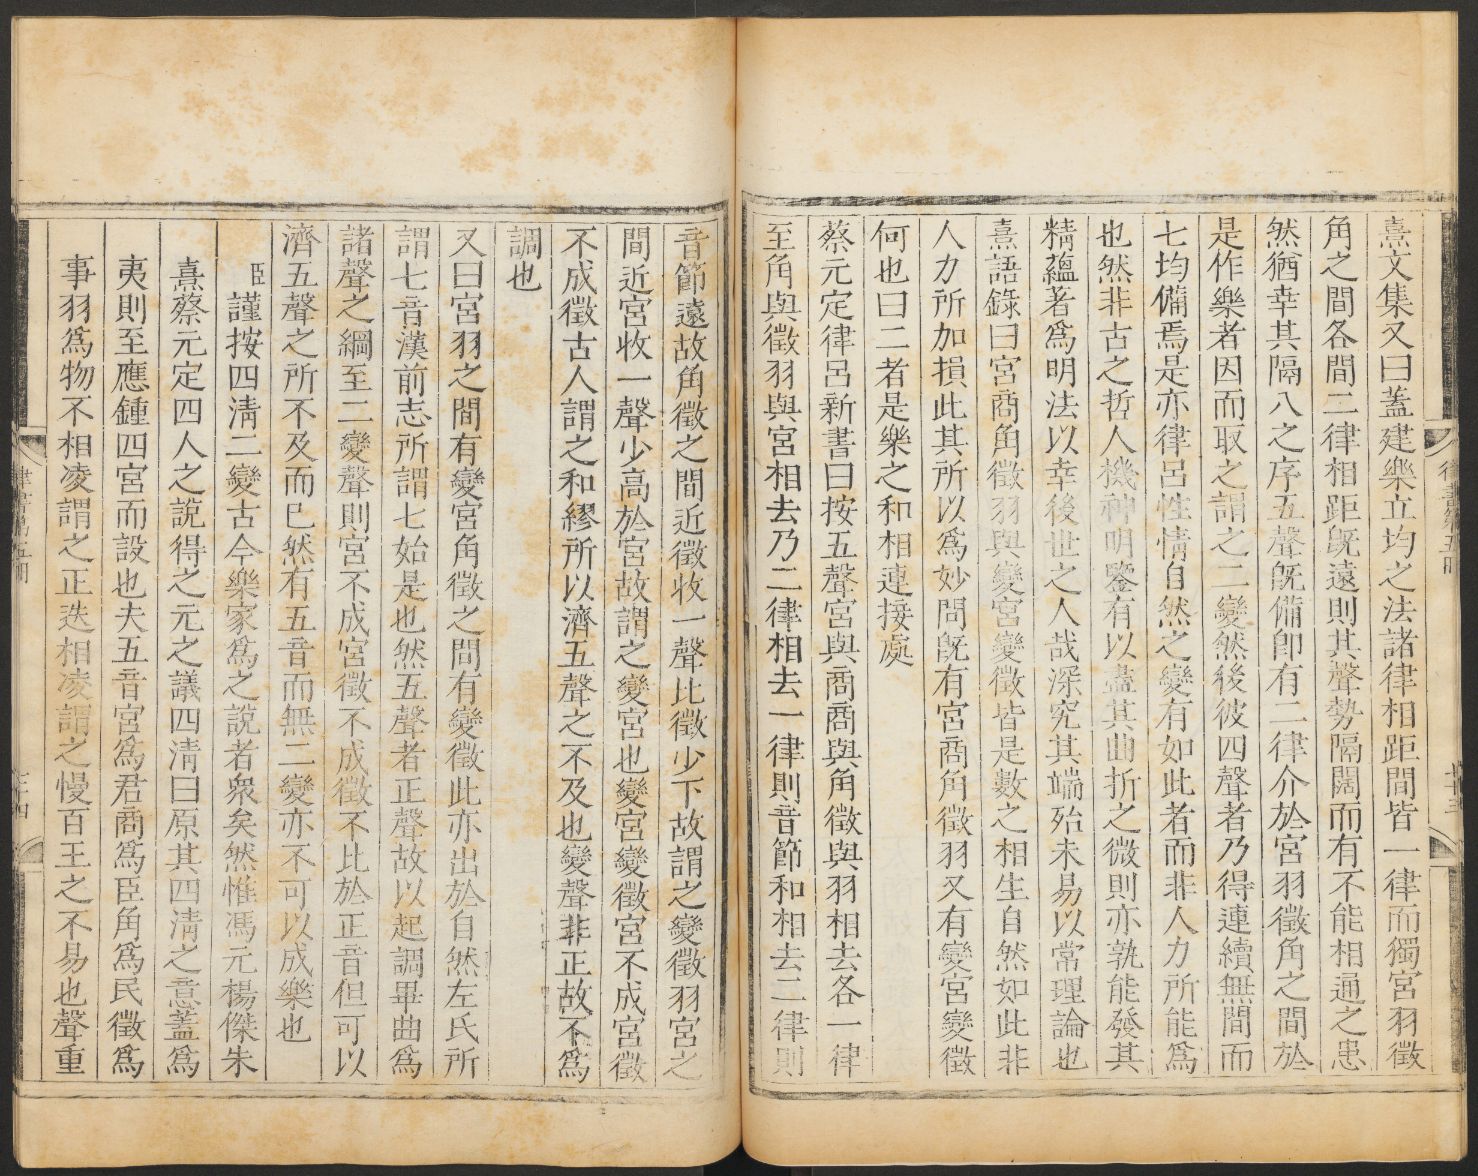 熹文集又曰蓋建樂立均之法諸律相距間皆一律而獨宮羽徵
角之間各間二律相距旣遠則其聲勢隔闊而有不能相通之患
然猶幸其隔八之序五聲旣備卽有二律介於宮羽徵角之間於
是作樂者因而取之謂之二變然後彼四聲者乃得連續無間而
七均備焉是亦律呂性情自然之變有如此者而非人力所能爲
也然非古之哲人機神明鑒有以盡其曲折之微則亦孰能發其
精蘊著爲明法以幸後世之人哉深究其端殆未易以常理論也
熹語錄曰宮商角徵羽與變宮變徵皆是數之相生自然如此非
人力所加損此其所以爲妙問旣有宮商角徵羽又有變宮變徵
何也曰二者是樂之和相連接處
蔡元定律呂新書曰按五聲宮與商商與角徵與羽相去各一律
至角與徵羽與宮相去乃二律相去一律則音節和相去二律則
音節遠故角徵之間近徵收一聲比徵少下故謂之變徵羽宮之
間近宮收一聲少高於宮故謂之變宮也變宮變徵宮不成宮徵
不成徵古人謂之和繆所以濟五聲之不及也變聲非正故不爲
調也
又曰宮羽之間有變宮角徵之間有變徵此亦出於自然左氏所
謂七音漢前志所謂七始是也然五聲者正聲故以起調畢曲爲
諸聲之綱至二變聲則宮不成宮徵不成徵不比於正音但可以
濟五聲之所不及而已然有五音而無二變亦不可以成樂也
臣謹按四淸二變古今樂家爲之說者衆矣然惟馮元楊傑朱
熹蔡元定四人之說得之元之議四淸曰原其四淸之意蓋爲
夷則至應鍾四宮而設也夫五音宮爲君商爲臣角爲民徵爲
事羽爲物不相凌謂之正迭相凌謂之慢百王之不易也聲重